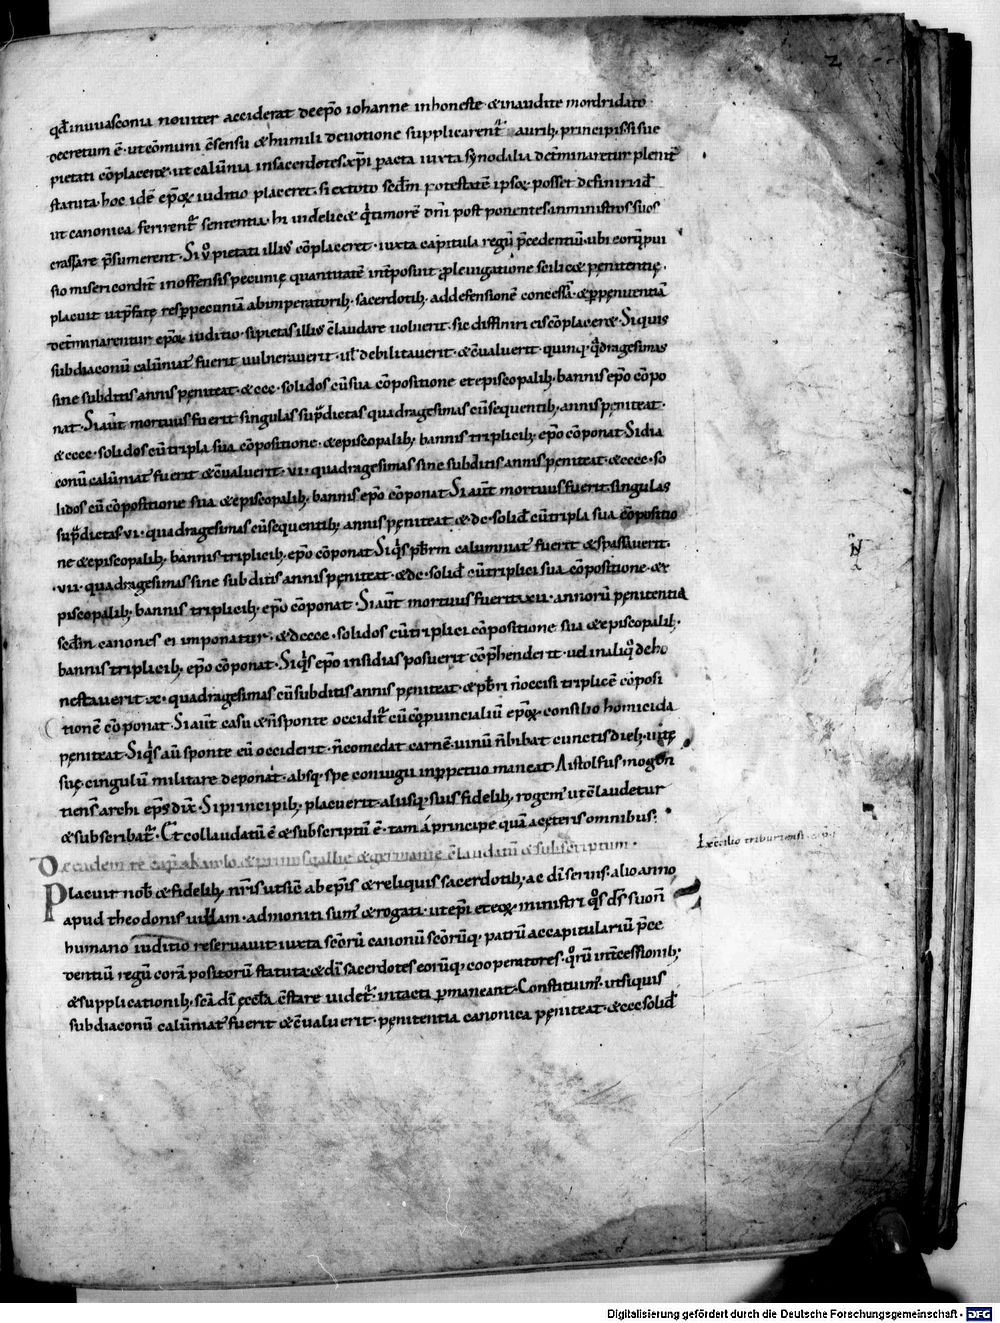 2
qđ inuuasconia nouiter acciderat deep̄o iohanne inhoneste & inaudite mordridato
decretum ē · ut cōmuni c̄sensu & humili deuotione supplicarent᷑ aurib; principis · si sue
pietati cōplacere · ut calūnia insacerdotes xp̄i peracta iuxta synodalia det̄minaretur plenit᷑
statuta · hoc idē ep̄oꝝ iuditio placeret · si extoto secd̄m potestatē ipsoꝝ posset definiri · id᷑
ut canonica ferirent᷑ sententia · hi uidelic& q̇ timorē dn̄i post ponentes inministros suos
crassare p̄sumerent · Si ū pietati illiꝰ cōplaceret · iuxta capitula regū p̄cedentiū · ubi eorū pui
sio misericordit̄ inoffensis pecunię quantitatē int̄posuit ꝓ leuigatione scilic& pęnitentię ·
placuit ut p̄fatę res ꝑ pecuniā abimperatorib; · sacerdotib; · addefensionē concessā · & ꝑ pęnitentiā
det̄minarentur ep̄oꝝ iuditio · si pietas illiꝰ c̄laudare uoluerit · sic diffiniri eis cōplacere · Siquis
subdiaconū calūniatꝰ fuerit uulnerauerit · ul̄ debilitauerit · & c̄ualuerit · quinq; q̄dragesimas
sine subditis annis pęniteat · & ccc · solidos cū sua cōpositione et episcopalib; · bannis ep̄o cōpo
nat · Si aūt mortuus fuerit singulas sup̄dictas quadragesimas cū sequentib; annis pęniteat ·
& cccc · solidos cū tripla sua cōpositione · & episcopalib; bannis triplicib; ep̄o cōponat Si dia
conū calūniatꝰ fuerit & c̄ualuerit · vi · quadragesimas sine subditis annis pęniteat · & cccc · so
lidos cū cōpositione sua & episcopalib; bannis ep̄o cōponat Si aūt mortuus fuerit · singulas
sup̄dictas · vi · quadragesimas cū sequentib; annis pęniteat & dc · solid̄ cū tripla sua cōpositio
ne & episcopalib; · bannis triplicib; · ep̄o cōponat Siq̇s p̄brm calumniatꝰ fuerit & spassauerit ·
· vii · quadragesimas sine subditis annis pęniteat · & dc · solid̄ cū triplici sua cōpositione · & e
piscopalib; · bannis triplicib; · ep̄o cōponat · Si aūt mortuus fuerit · xii · annorū pęnitentia
secd̄m canones ei imponatur · & dcccc · solidos cū triplici cōpositione sua & episcopalib; ·
bannis triplicib; ep̄o cōponat · Siq̇s ep̄o insidias posuerit cōp̄henderit · uel inaliq̊ deho
nestauerit · x · quadragesimas cū subditis annis pęniteat · & p̄bri n̄ occisi triplicē cōposi
tionē cōponat · Si aūt casu & n̄ sponte occidit᷑ cū cōꝓuincialiū ep̄oꝝ consilio homicida
pęniteat · Siq̇s aū sponte eū occiderit · n̄ comedat carnē · uinū n̄ bibat cunctis dieb; · uitę
suę · cingulū militare deponat · absq; spe coniugii inꝑpetuo maneat · Aistolfus mogon
tiensꝰ archi ep̄s dix̄ · Si principib; placuerit · aliisq; suis fidelib; rogemꝰ ut c̄laudetur
& subscribat᷑ · Et collaudatū ē & subscriptū ē · tam á principe quā acęteris omnibus ·
De eadem re capt̄ a karolo & primis gallie & germanie c̄laudatū & subscriptum ·
Placuit nob̄ & fidelib; nr̄is ut sic ab ep̄is & reliquis sacerdotib; · ac dī seruis · alio anno
apud theodonis uillam · admoniti sumꝰ & rogati · ut ep̄i et eoꝝ ministri q̊s ds̄ suo n̄
humano iuditio reseruauit iuxta sc̄orū canonū sc̄orūq; patrū accapitulariū p̄ce
dentiū regū corā positorū statuta · & dī sacerdotes eorūq; cooperatores · q̊rū int̄cessionib; ·
& supplicationib; sc̄a dī ęcct̄a c̄stare uidet᷑ · intacti ꝑmaneant · Constituimꝰ · ut siquis
subdiaconū calūniatꝰ fuerit & c̄ualuerit · pęnitentia canonica pęniteat · & ccc solid̄
Ex c̄cilio triburiensi
Digitalisierung gefördert durch die Deutsche Forschungsgemeinschaft - DFG